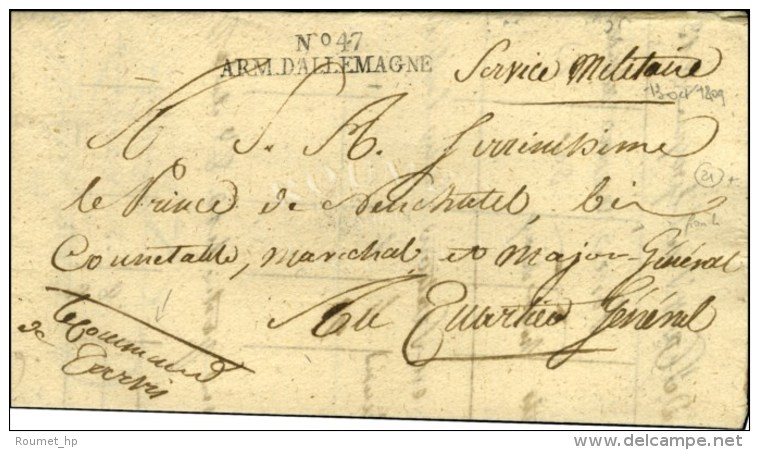 No 47
ARM. D'ALLEMAGNE
Service Militaire
13 oct 1809
A S. A. Sérénissime
21
le Prince de Neuchatel, Vice
Connetable, Marechal et Major-Général
Au Quartier Général
le Command
de Tarvis
Roumet_hp
©delcampe.net